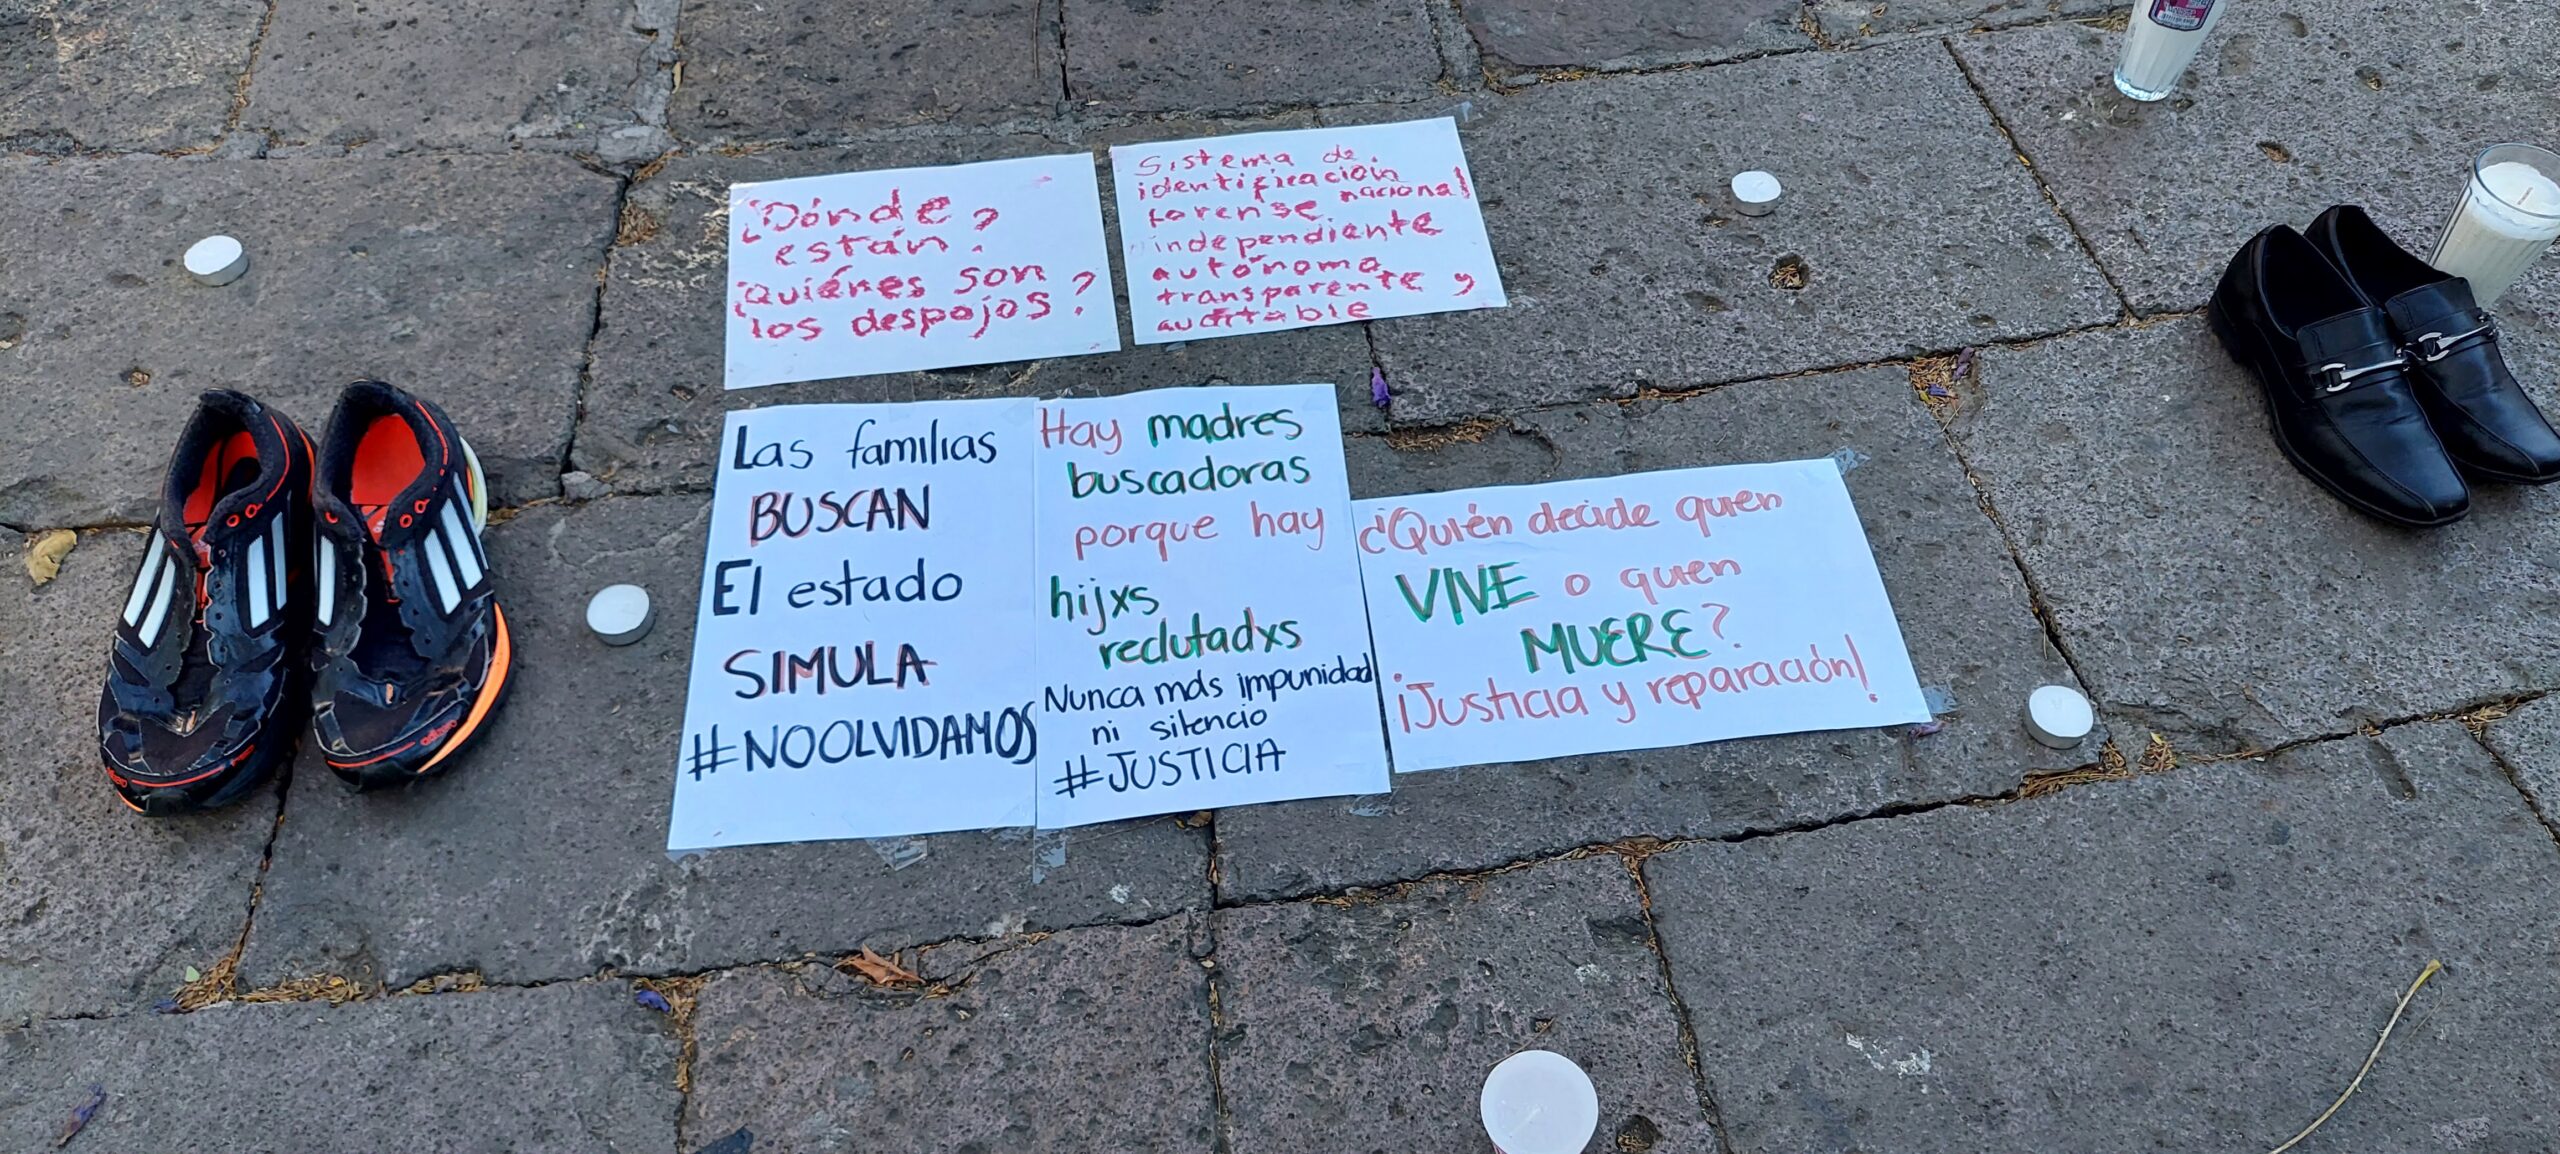 ¿Dónde
están?
¿Quiénes son
los despojos?
Sistema de
identificación
forense nacional
independiente
autónomo
transparente y
auditable
Las familias
BUSCAN
El estado
SIMULA
#NOOLVIDAMOS
Hay madres
buscadoras
porque hay
hijxs
reclutadxs
Nunca más impunidad
ni silencio
#JUSTICIA
¿Quién decide quien
VIVE o quien
MUERE?
¡Justicia y reparación!
adizero